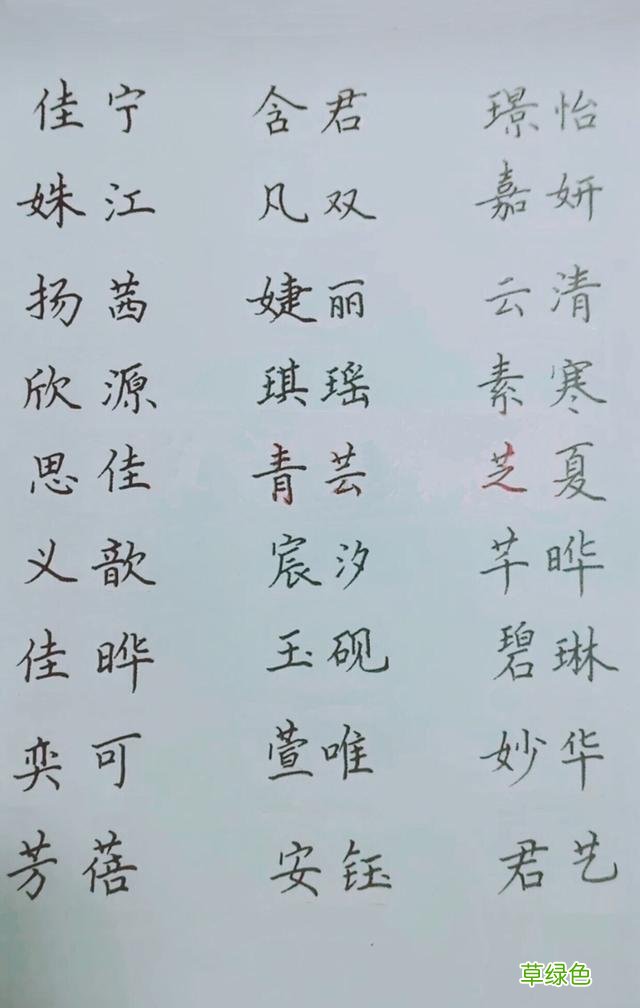 佳宁 含君 璟怡
姝江 凡双 嘉妍
扬茜 婕丽 云清
欣源 琪瑶 素寒
思佳 青芸 芝夏
义歆 宸汐 芊晔
佳晔 玉砚 碧琳
奕可 萱唯 妙华
芳蓓 安钰 君艺
草绿色